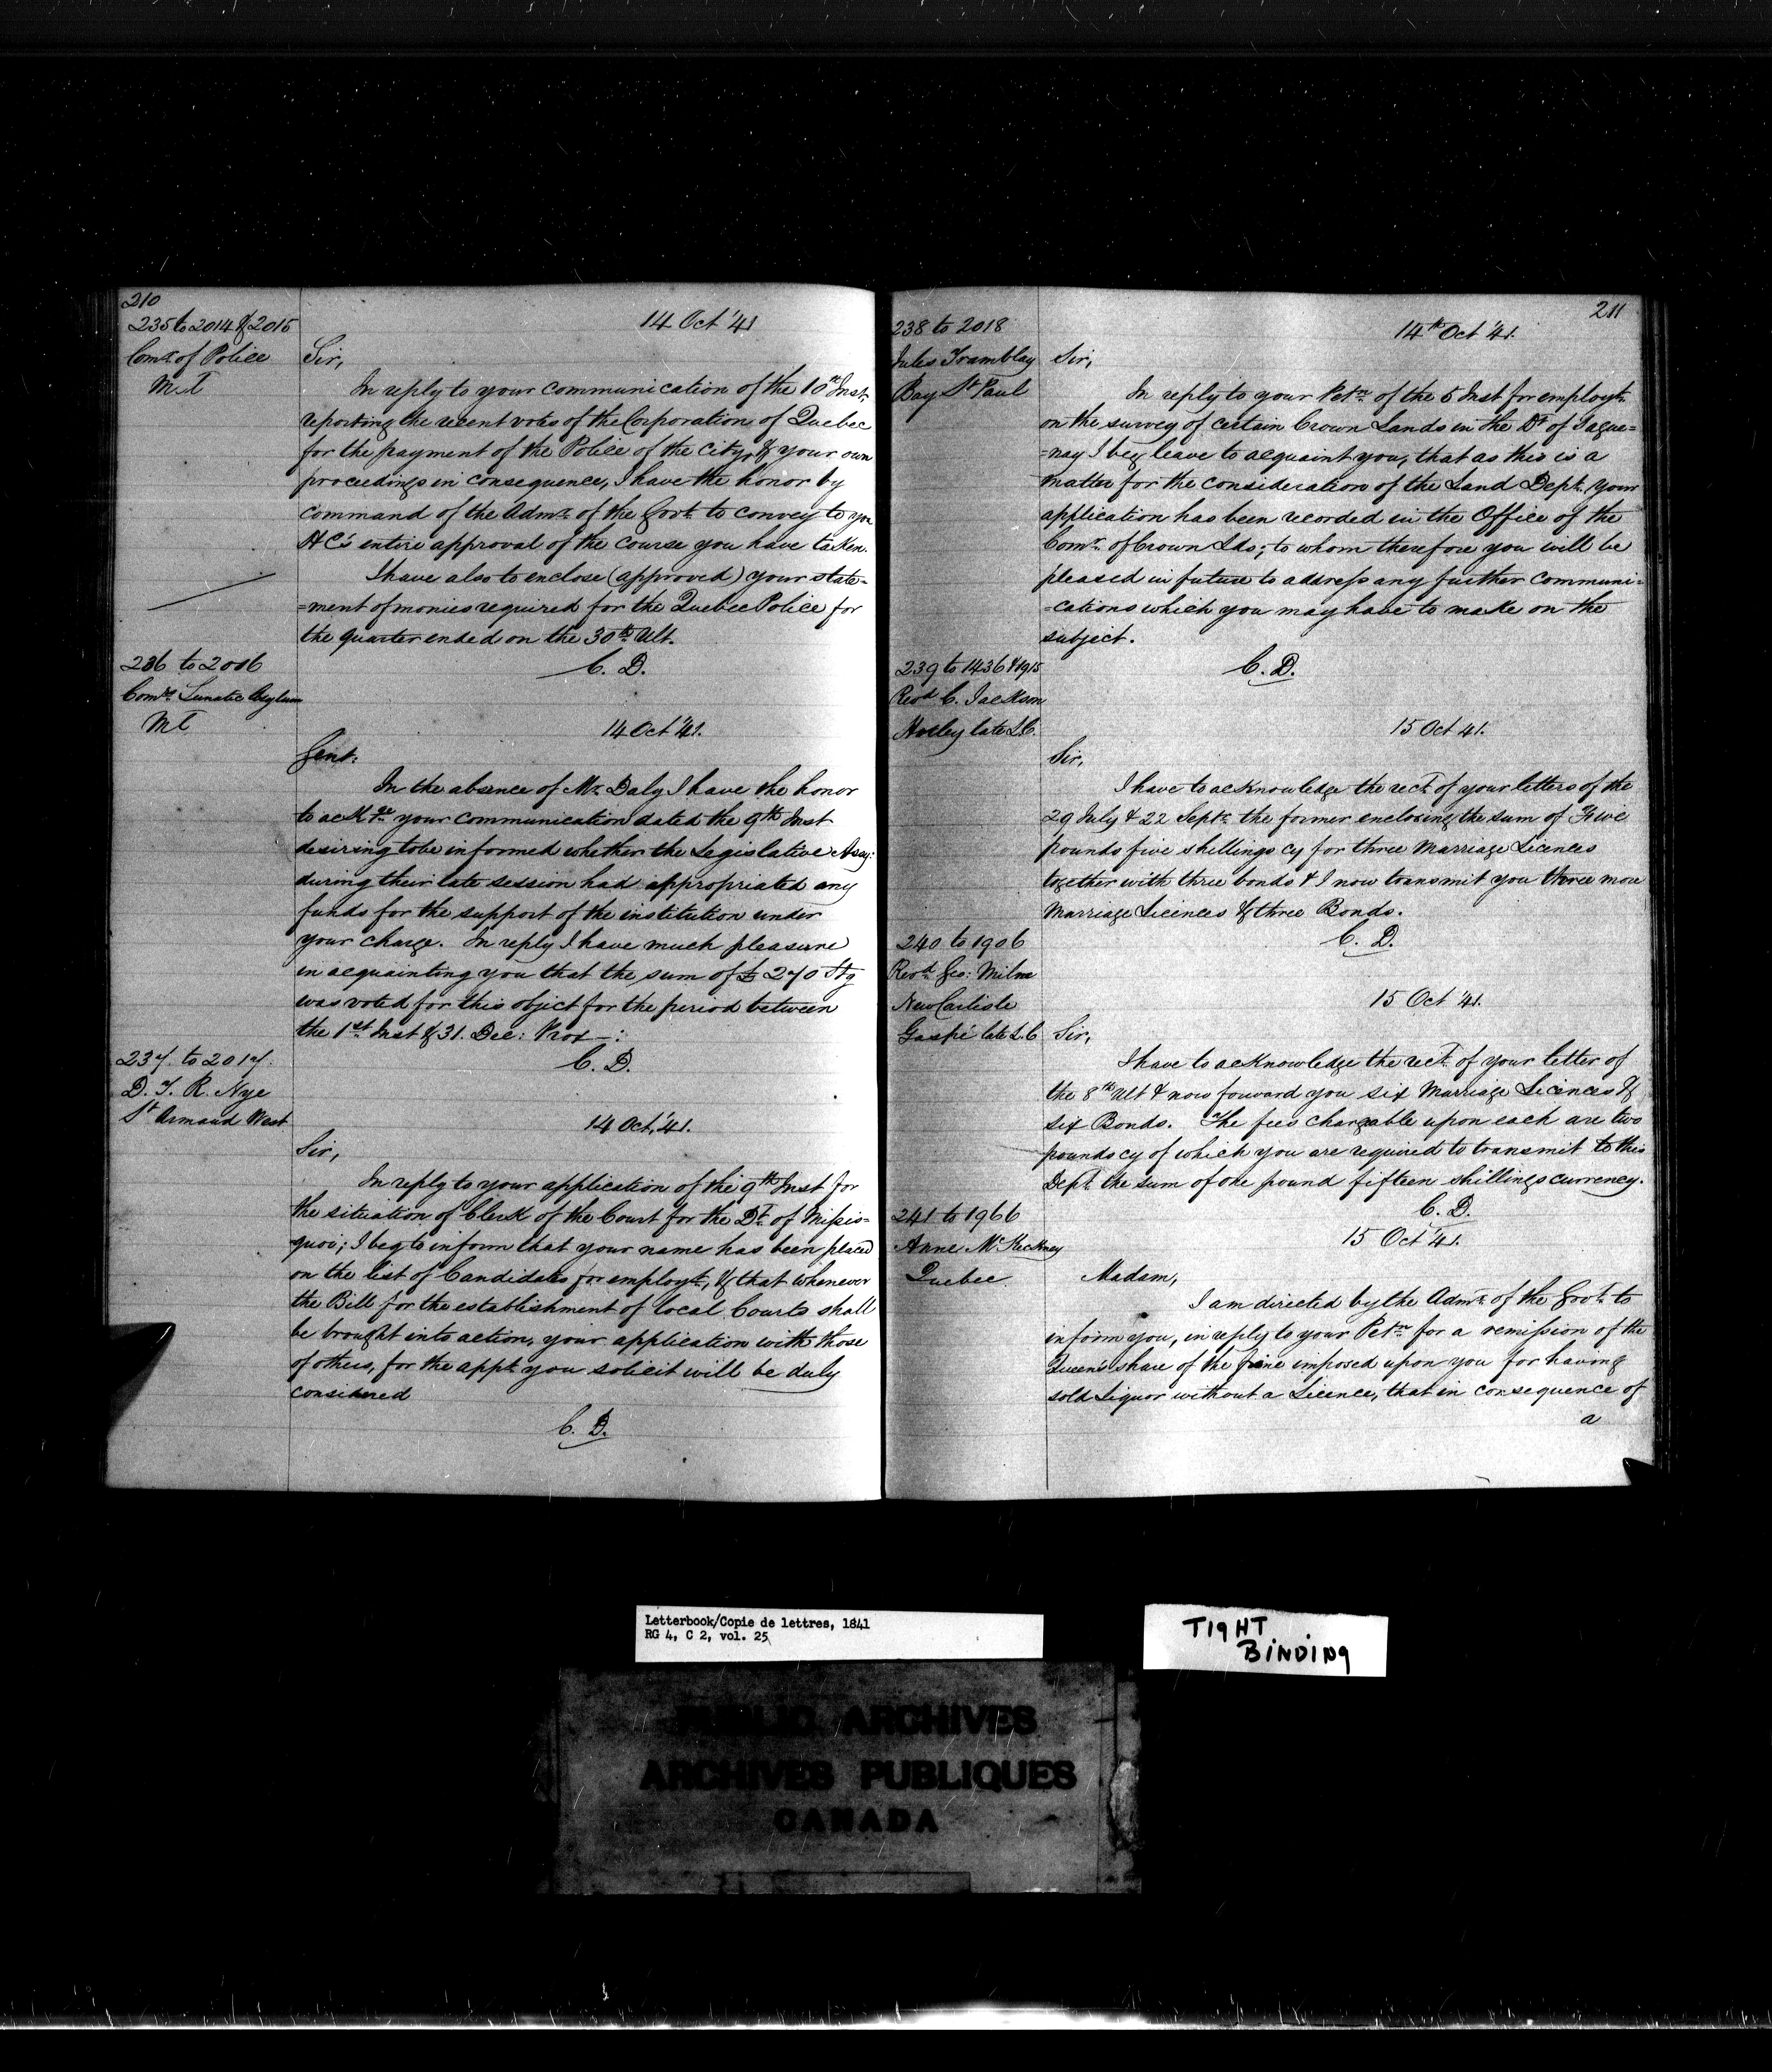 210
235 to 2014 & 2015
Comr. of Police
M.T
14 Oct '41
Sir,
In reply to your communication of the 10th Inst.
reporting the recent votes of the Corporation of Quebec
for the payment of the Police of the City, & your own
proceedings in consequence, I have the honor by
command of the Admr. of the Govt. to convey to you
HE's entire approval of the course you have taken.
I have also to enclose (approved) your state=
=ment of monies required for the Quebec Police for
the quarter ended on the 30th Ult.
C. D.
236 to 2006
Comrs. Lunatic Asylum
M T
14 Oct '41.
Gent:
In the absence of Mr. Daly I have the honor
to ackge. your communication dated the 9th Inst
desiring to be informed whether the Legislative Assy:
during their late session had appropriated any
funds for the support of the institution under
your charge. In reply I have much pleasure
in acquainting you that the sum of £ 270 Stg
was voted for this object for the period between
the 1st Inst & 31. Dec: Prox—:
C. D.
237. to 2017.
D. T. R. Nye
St Armand West
14 Oct, '41.
Sir,
In reply to your application of the 9th Inst for
the situation of Clerk of the Court for the Dt. of Missis=
quoi; I beg to inform that your name has been placed
on the list of Candidates for employt., & that whenever
the Bill for the establishment of local Courts shall
be brought into action, your application with those
of others, for the appt. you solicit will be duly
considered
C. D.
211
238 to 2018
Jules Tramblay
Bay St Paul
14th Oct '41.
Sir,
In reply to your Petn. of the 5 Inst for employt.
on the survey of certain Crown Lands in the Dt. of Sague=
=nay I beg leave to acquaint you, that as this is a
matter for the consideration of the Land Dept. your
application has been recorded in the Office of the
Comr. of Crown Lds; to whom therefore you will be
pleased in future to address any further communi=
=cations which you may have to make on the
subject.
C. D.
239 to 1436 & 1915
Revd C. Jackson
Hatley late L.C.
15 Oct 41.
Sir,
I have to acknowledge the rect. of your letters of the
29 July & 22 Septr. the former enclosing the sum of Five
pounds five shillings cy for three Marriage Licences
together with three bonds & I now transmit you three more
Marriage Licences & three Bonds.
C. D.
240 to 1906
Revd. Geo: Milne
New Carlisle
Gaspé late L.C
15 Oct '41.
Sir,
I have to acknowledge the rect. of your letter of
the 8th Ult & now forward you six Marriage Licences &
six Bonds. The fees chargeable upon each are two
pounds cy of which you are required to transmit to this
Dept. the sum of one pound fifteen shillings currency.
C. D.
241 to 1966
Anne McKeckney
Quebec
15 Oct '41.
Madam,
I am directed by the Admr. of the Govt. to
inform you, in reply to your Petn. for a remission of the
Queen's share of the fine imposed upon you for having
sold Liquor without a Licence, that in consequence of
a
Letterbook/Copie de lettres, 1841
RG 4, C 2, vol. 25
TIGHT
BINDING
PUBLIC ARCHIVES
ARCHIVES PUBLIQUES
CANADA